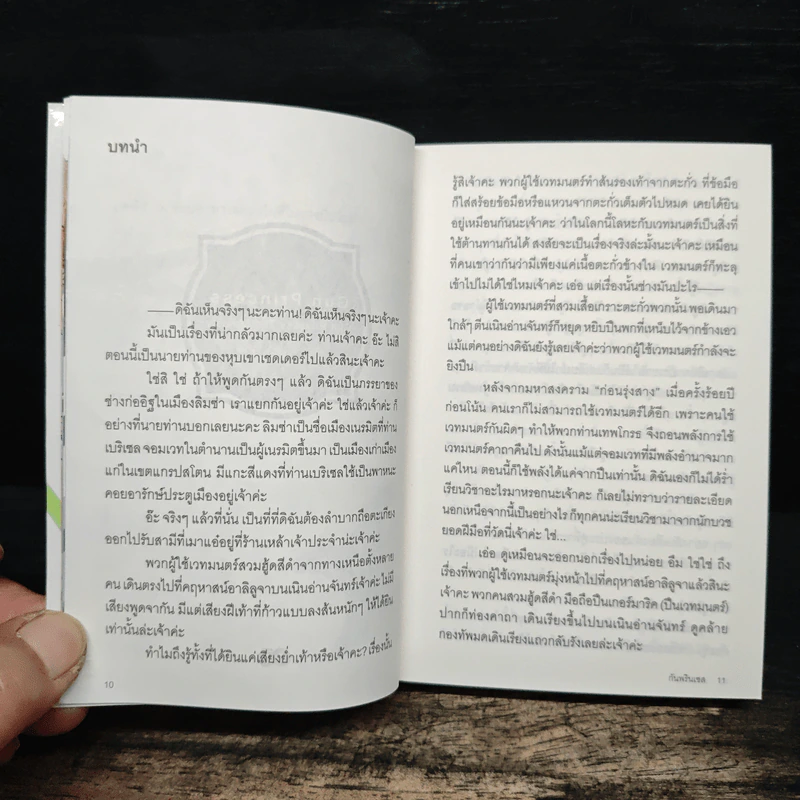 บทนำ
——ดิฉันเห็นจริงๆ นะคะท่าน! ดิฉันเห็นจริงๆ นะเจ้าคะ
มันเป็นเรื่องที่น่ากลัวมากเลยค่ะ ท่านเจ้าคะ อ๊ะ ไม่สิ
ตอนนี้เป็นนายท่านของหุบเขาเชดเดอร์ไปแล้วสินะเจ้าคะ
ใช่สิ ใช่ ถ้าให้พูดกันตรงๆ แล้ว ดิฉันเป็นภรรยาของ
ช่างก่ออิฐในเมืองลิมซ่า เราแยกกันอยู่เจ้าค่ะ ใช่แล้วเจ้าค่ะ ก็
อย่างที่นายท่านบอกเลยนะคะ ลิมซ่าเป็นชื่อเมืองเนรมิตที่ท่าน
เบริเซล จอมเวทในตำนานเป็นผู้เนรมิตขึ้นมา เป็นเมืองเก่าเมือง
แก่ในเขตแกรปสโตน มีแกะสีแดงที่ท่านเบริเซลใช้เป็นพาหนะ
คอยอารักษ์ประตูเมืองอยู่เจ้าค่ะ
อ๊ะ จริงๆ แล้วที่นั่น เป็นที่ที่ดิฉันต้องลำบากถือตะเกียง
ออกไปรับสามีที่เมาแอ๋อยู่ที่ร้านเหล้าเจ้าประจำน่ะเจ้าค่ะ
พวกผู้ใช้เวทมนตร์สวมฮู้ดสีดำจากทางเหนือตั้งหลาย
คน เดินตรงไปที่คฤหาสน์อาลิลูจาบนเนินอ่านจันทร์เจ้าค่ะ ไม่มี
เสียงพูดจากัน มีแต่เสียงฝีเท้าที่ก้าวแบบลงส้นหนักๆ ให้ได้ยิน
เท่านั้นล่ะเจ้าค่ะ
ทำไมถึงรู้ทั้งที่ได้ยินแค่เสียงย่ำเท้าหรือเจ้าคะ? เรื่องนั้น
10
รู้สิเจ้าคะ พวกผู้ใช้เวทมนตร์ทำส้นรองเท้าจากตะกั่ว ที่ข้อมือ
ก็ใส่สร้อยข้อมือหรือแหวนจากตะกั่วเต็มตัวไปหมด เคยได้ยิน
อยู่เหมือนกันนะเจ้าคะ ว่าในโลกนี้โลหะกับเวทมนตร์เป็นสิ่งที่
ใช้ต้านทานกันได้ สงสัยจะเป็นเรื่องจริงล่ะมั้งนะเจ้าคะ เหมือน
ที่คนเขาเล่าว่ากันว่ามีเพียงแค่เนื้อตะกั่วข้างใน เวทมนตร์ก็ทะลุ
เข้าไปไม่ได้ใช่ไหมเจ้าคะ เอ่อ แต่เรื่องนั้นช่างมันปะไร——
ผู้ใช้เวทมนตร์ที่สวมเสื้อเกราะตะกั่วพวกนั้น พอเดินมา
ใกล้ๆ ตีนเนินอ่านจันทร์ก็หยุด หยิบปืนพกที่เหน็บไว้จากข้างเอว
แม้แต่คนอย่างดิฉันยังรู้เลยเจ้าค่ะว่าพวกผู้ใช้เวทมนตร์กำลังจะ
ยิงปืน
หลังจากมหาสงคราม “ก่อนรุ่งสาง” เมื่อครั้งร้อยปี
ก่อนโน้น คนเราก็ไม่สามารถใช้เวทมนตร์ได้อีก เพราะคนใช้
เวทมนตร์กันผิดๆ ทำให้พวกท่านเทพโกรธ จึงถอนพลังการใช้
เวทมนตร์คาถาคืนไป ดังนั้นแม้แต่จอมเวทที่มีพลังอำนาจมาก
แค่ไหน ตอนนี้ก็ใช้พลังได้แค่จากปืนเท่านั้น ดิฉันเองก็ไม่ได้ร่ำ
เรียนวิชาอะไรมาหรอกนะเจ้าคะ ก็เลยไม่ทราบว่ารายละเอียด
นอกเหนือจากนี้เป็นอย่างไร ก็ทุกคนน่ะเรียนวิชามาจากนักบวช
ยอดฝีมือที่วัดนี่เจ้าคะ ใช่...
เอ่อ ดูเหมือนจะออกนอกเรื่องไปหน่อย อืม ใช่ใช่ ถึง
เรื่องที่พวกผู้ใช้เวทมนตร์มุ่งหน้าไปที่คฤหาสน์อาลิลูจาแล้วสินะ
เจ้าคะ พวกคนสวมฮู้ดสีดำ มือถือปืนเกอร์มาริค (ปืนเวทมนตร์)
ปากก็ท่องคาถา เดินเรียงขึ้นไปบนเนินอ่านจันทร์ ดูคล้าย
กองทัพมดเดินเรียงแถวกลับรังเลยล่ะเจ้าค่ะ
กันพรินเซส 11